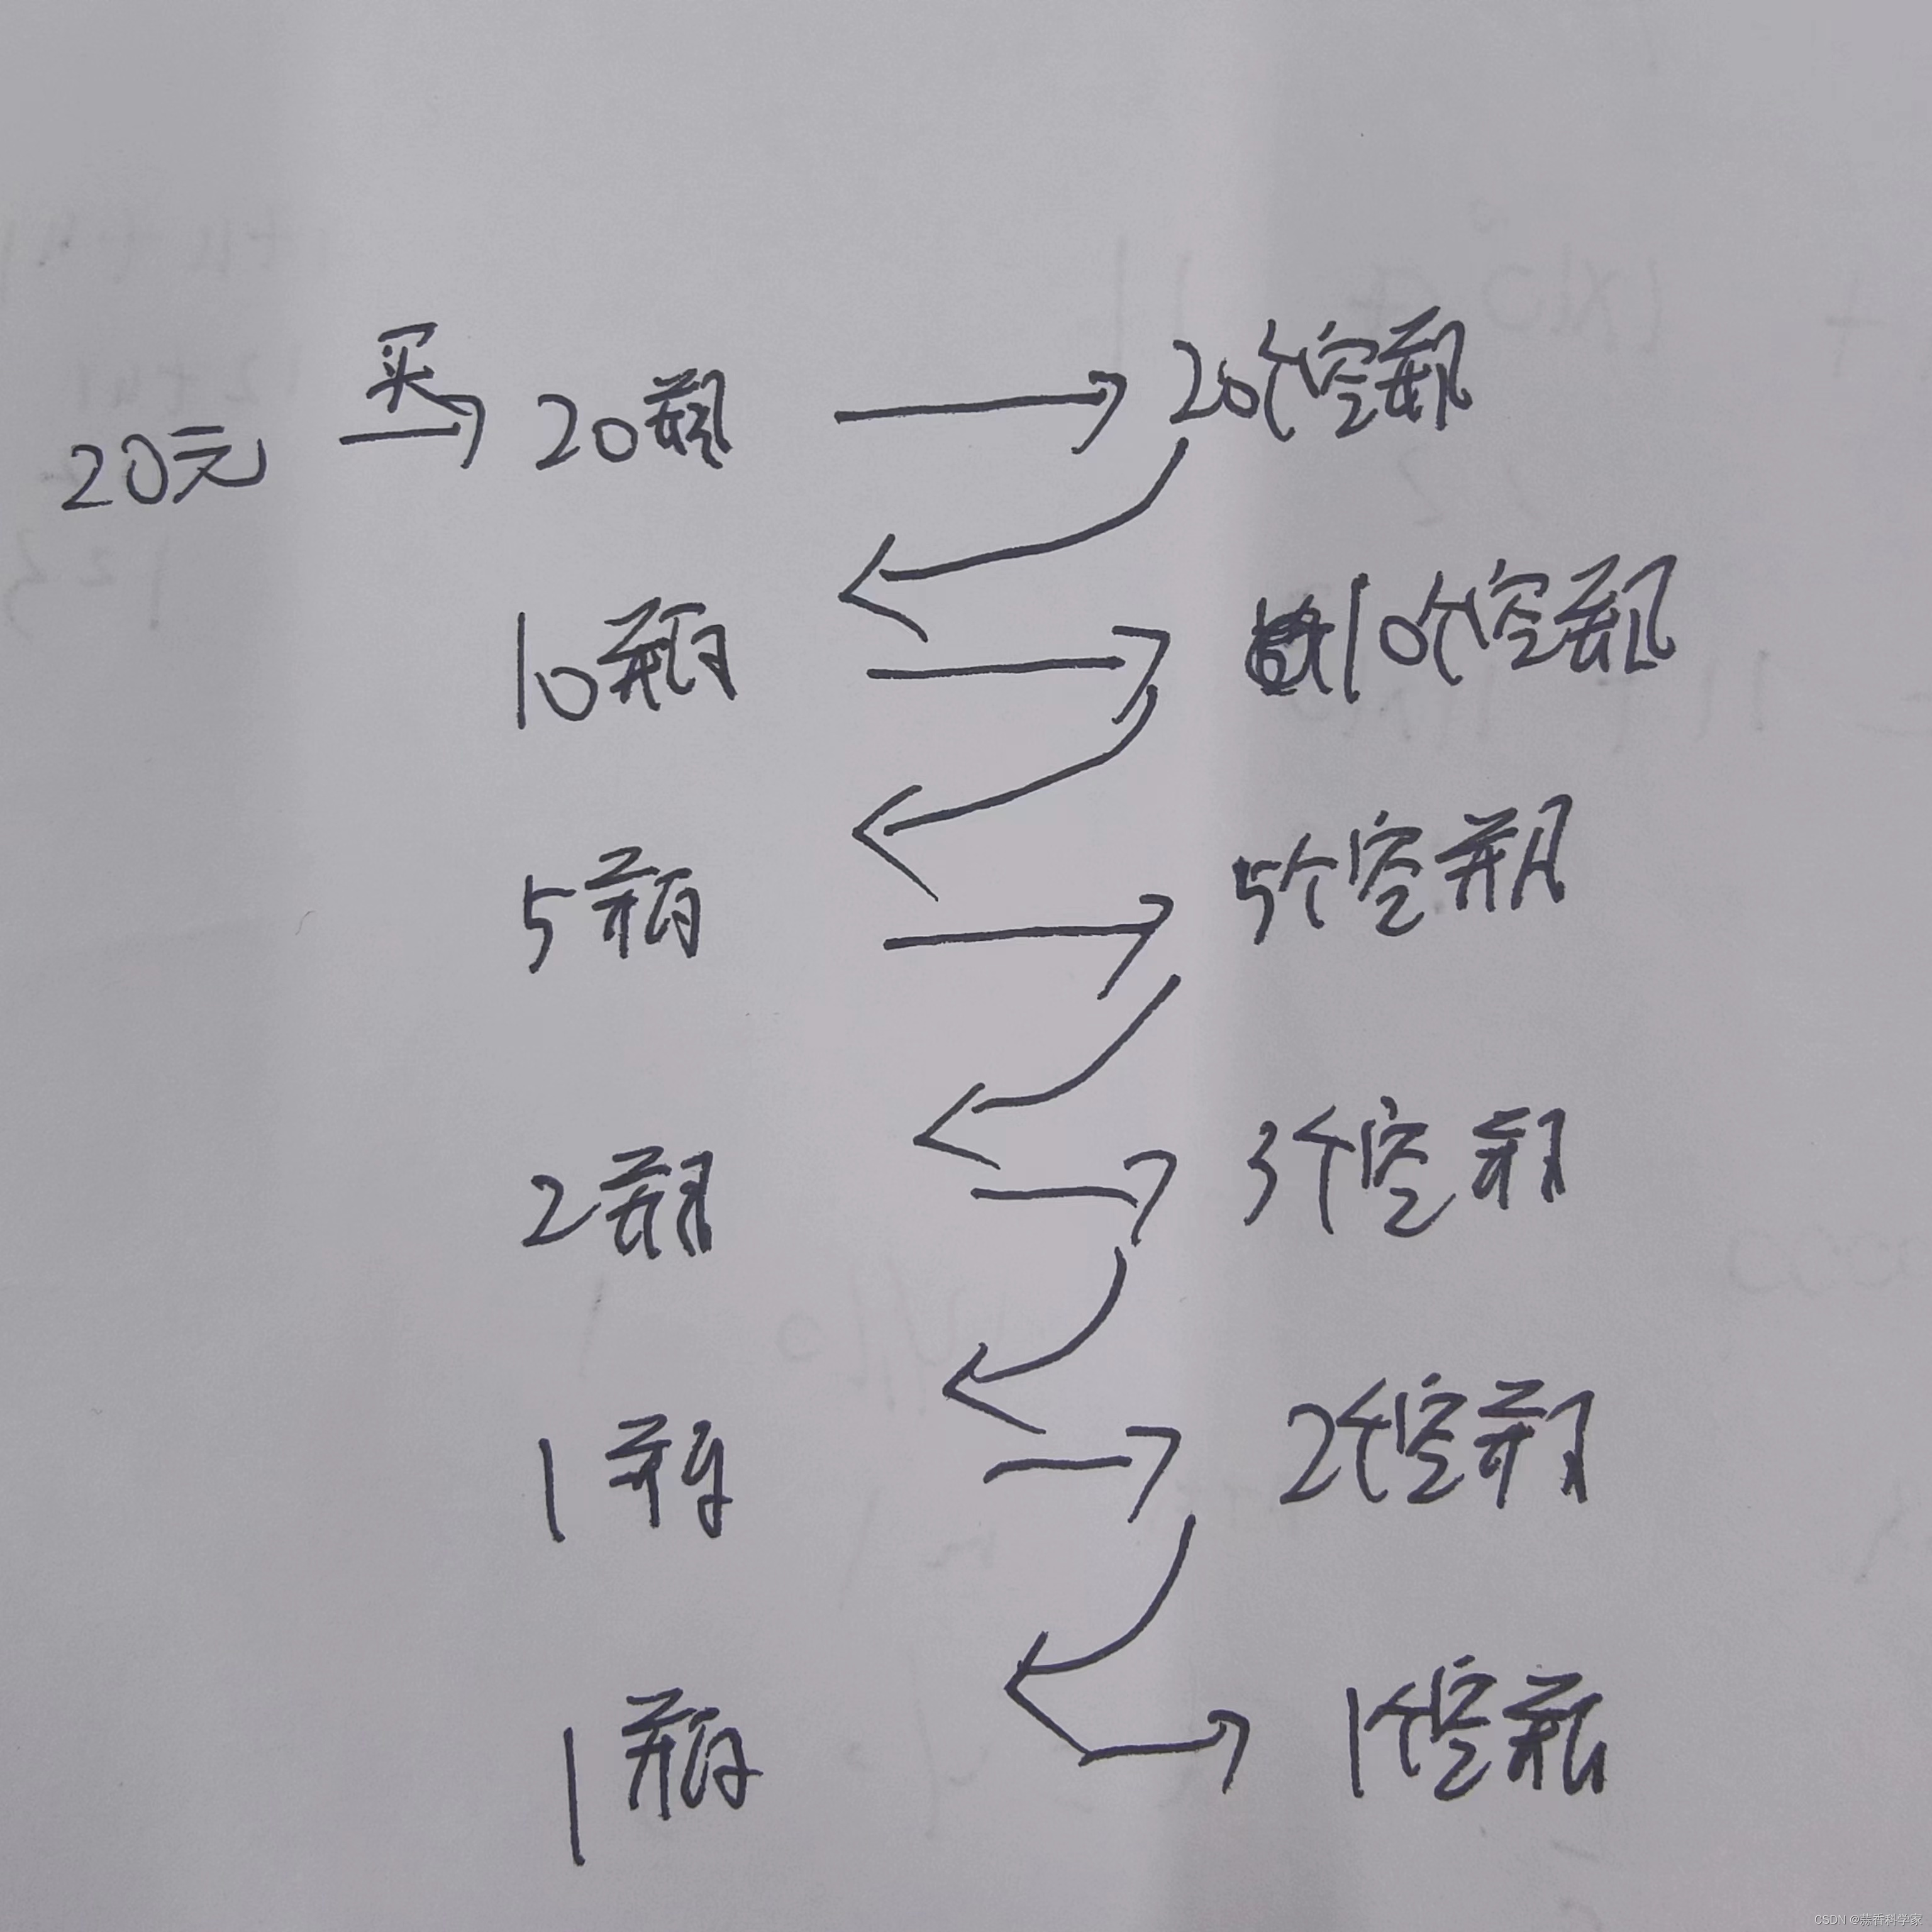 买
20元 20瓶 20个空瓶
10瓶 10个空瓶
5瓶 5个空瓶
2瓶 3个空瓶
1瓶 2个空瓶
1瓶 1个空瓶
CSDN @蒜香科学家